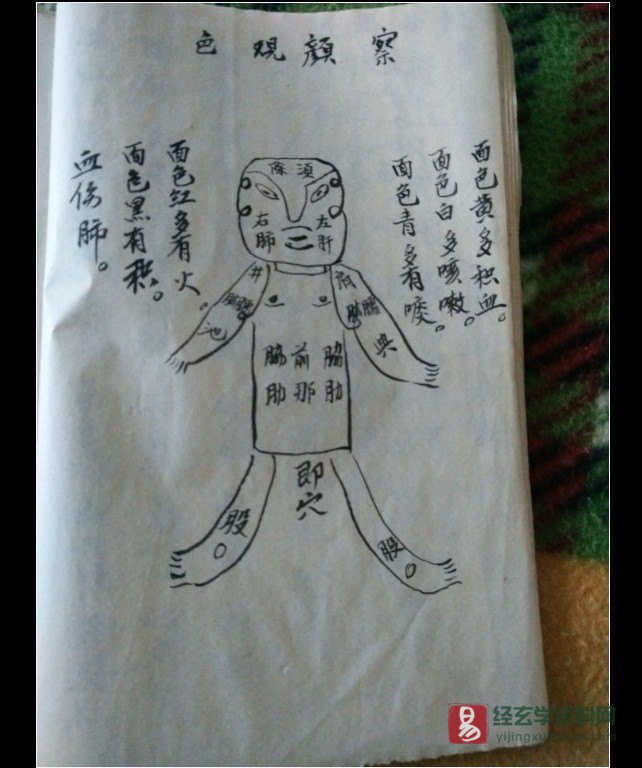 察顏观色
面色黄多积血。
面色白多咳嗽。
面色青多有痰。
面色红多有火。
面色黑有积。
血伤肺。
右肺
左肝
井
池
肩
臑
胁肋
前
那
胁肋
即穴
股
股
易
经玄学资料网